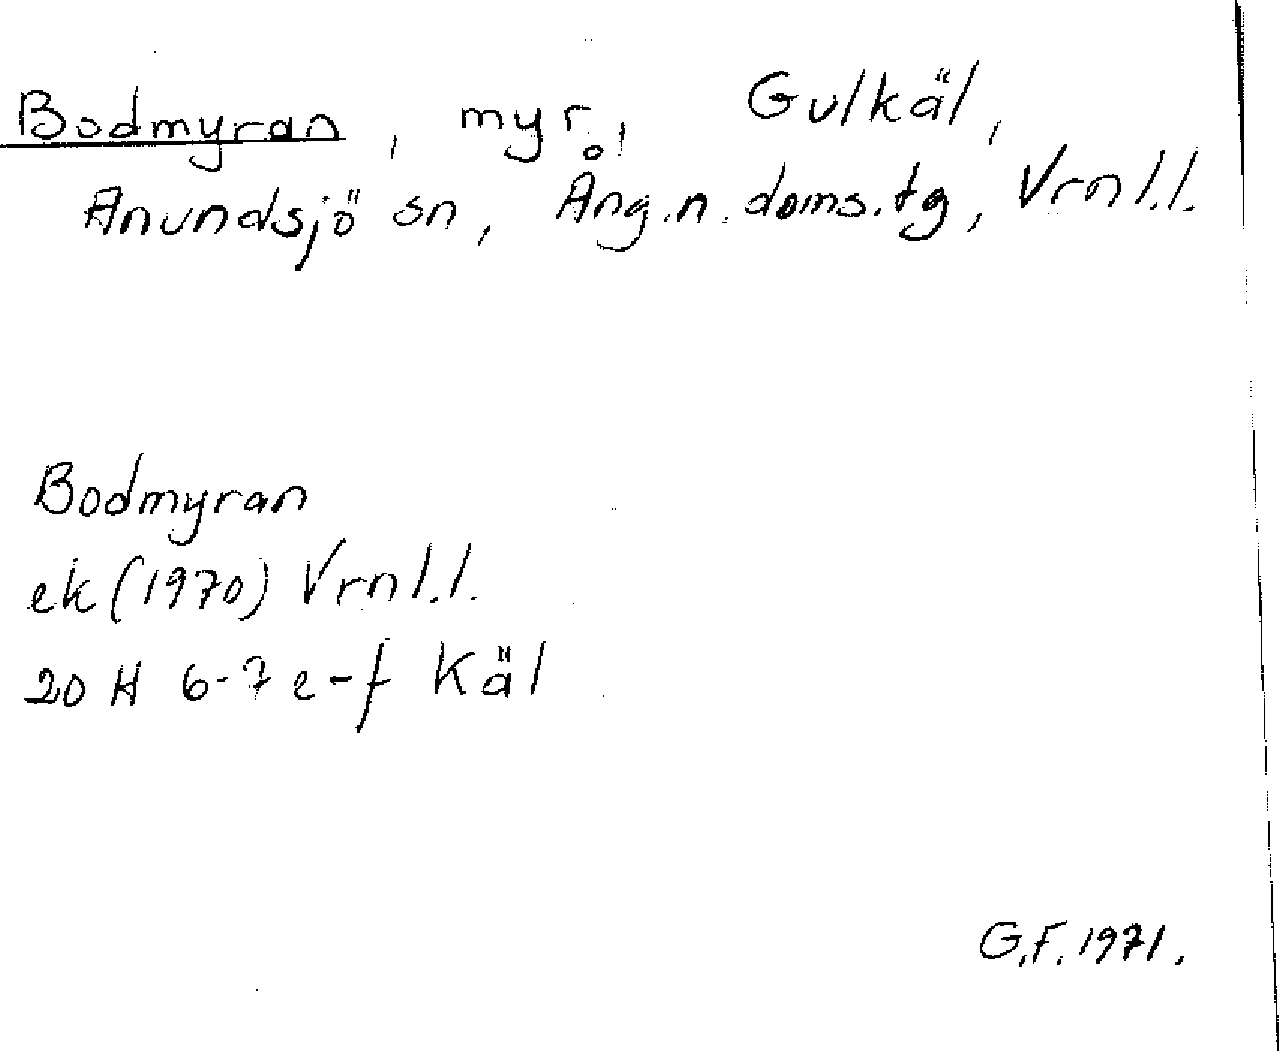 Bodmyran, myr, Gulkäl,
Anundsjö sn, Ång.n.doms.tg, Vrnl.l.
Bodmyran
ek (1970) Vrnl.l.
20 H 6-7 e-f Käl
G.F. 1971.